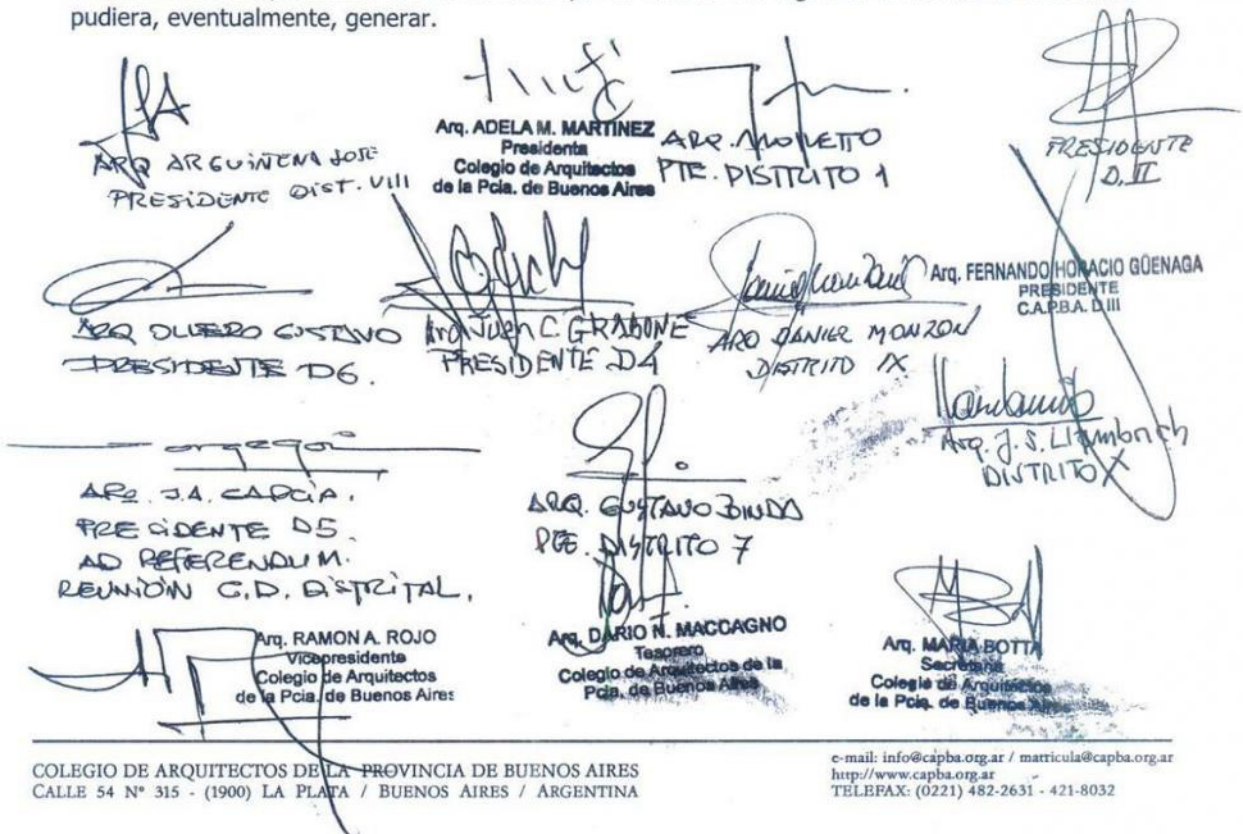 pudiera, eventualmente, generar.
ARQ ARGUIÑENA JOSE
PRESIDENTE DIST. VIII
Arq. ADELA M. MARTINEZ
Presidenta
Colegio de Arquitectos
de la Pcia. de Buenos Aires
ARQ.
PTE. DISTRITO 1
PRESIDENTE
D. II
ARQ OLIVERO GUSTAVO
PRESIDENTE D6.
Arq Juan C. GRABONE
PRESIDENTE D4
ARQ DANIEL MONZON
DISTRITO IX
Arq. FERNANDO HORACIO GÜENAGA
PRESIDENTE
C.A.P.B.A. D.III
Arq. J. S. Llambrich
DISTRITO X
ARQ. J.A. GARCIA.
PRESIDENTE D5.
AD REFERENDUM.
REUNIÓN C.D. DISTRITAL.
ARQ. GUSTAVO BINDA
PTE. DISTRITO 7
Arq. RAMON A. ROJO
Vicepresidente
Colegio de Arquitectos
de la Pcia. de Buenos Aires
Arq. DARIO N. MACCAGNO
Tesorero
Colegio de Arquitectos de la
Pcia. de Buenos Aires
Arq. MARIA BOTTA
Secretaria
Colegio de Arquitectos
de la Pcia. de Buenos Aires
COLEGIO DE ARQUITECTOS DE LA PROVINCIA DE BUENOS AIRES
CALLE 54 N° 315 - (1900) LA PLATA / BUENOS AIRES / ARGENTINA
e-mail: info@capba.org.ar / matricula@capba.org.ar
http://www.capba.org.ar
TELEFAX: (0221) 482-2631 - 421-8032